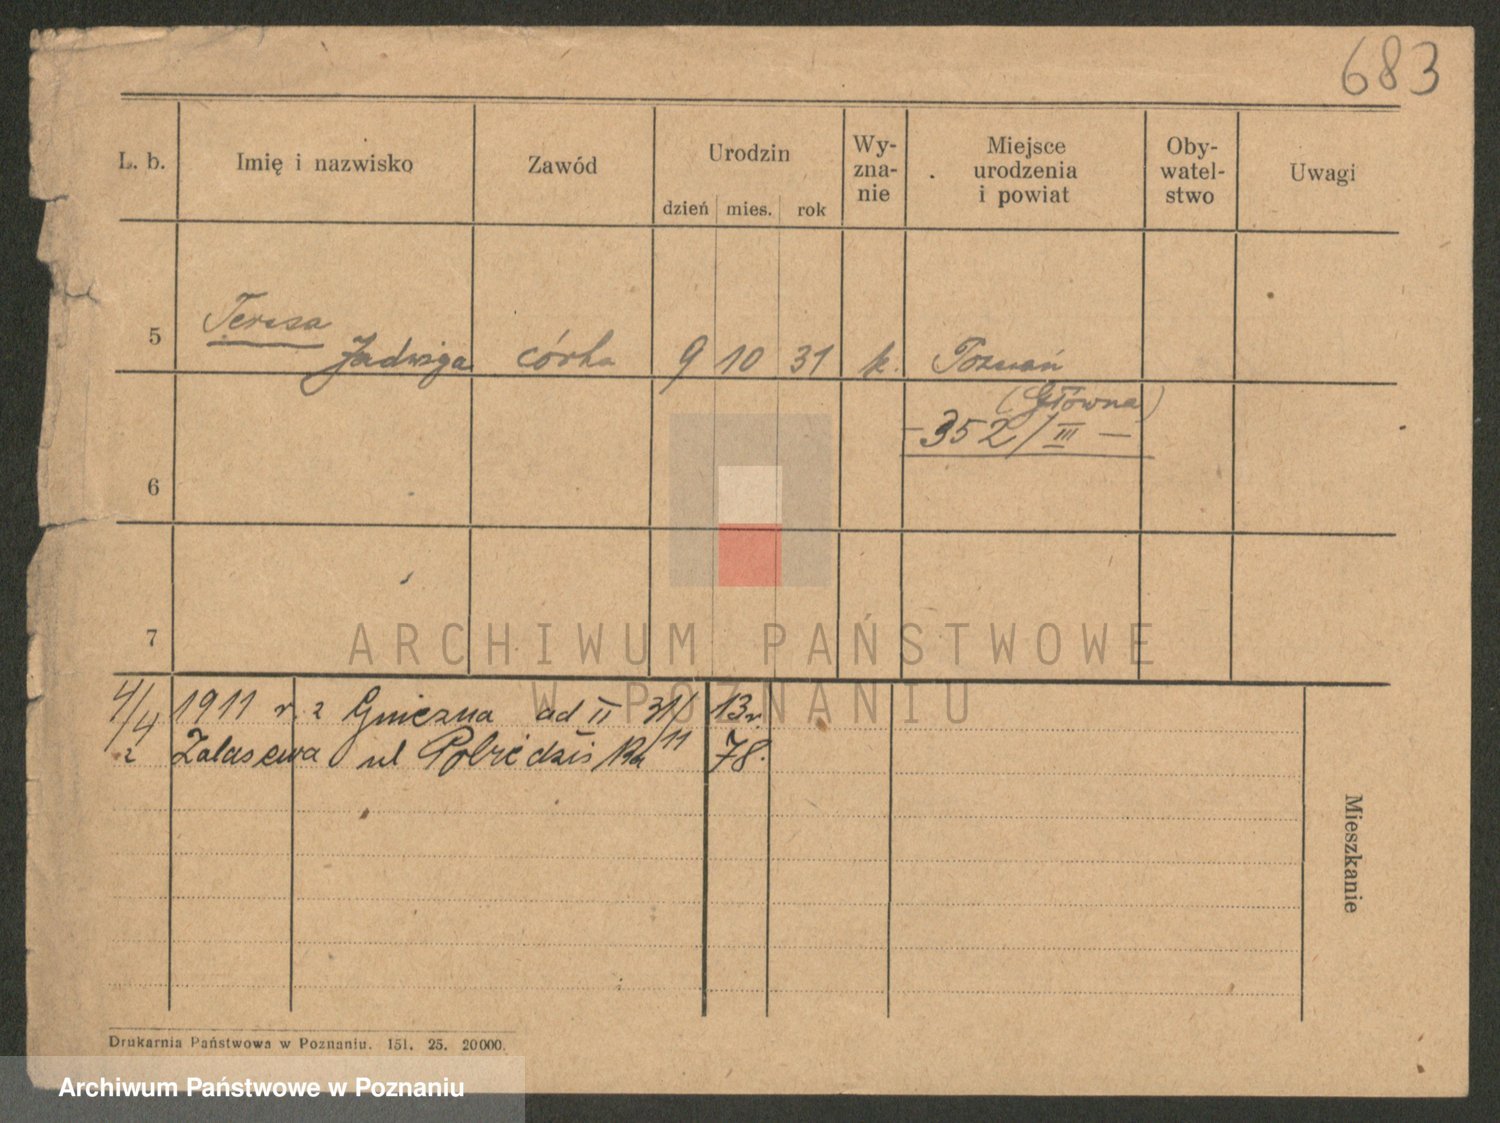 683
L. b. Imię i nazwisko Zawód Urodzin dzień mies. rok Wy- zna- nie Miejsce urodzenia i powiat Oby- watel- stwo Uwagi
Teresa
5 Jadwiga córka 9 10 31 k. Poznań
(Główna)
— 352/III —
6
7
ARCHIWUM PAŃSTWOWE
W POZNANIU
4/4 1911 r. z Gniezna ad II 31/ 13r.
2 Zalasewa ul 11 78.
Mieszkanie
Drukarnia Państwowa w Poznaniu. 151. 25. 20000.
Archiwum Państwowe w Poznaniu